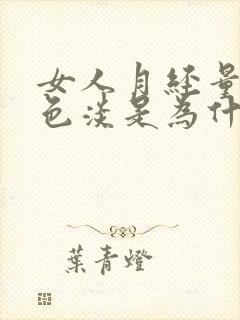 女人月经量
色淡是為什
葉青燈